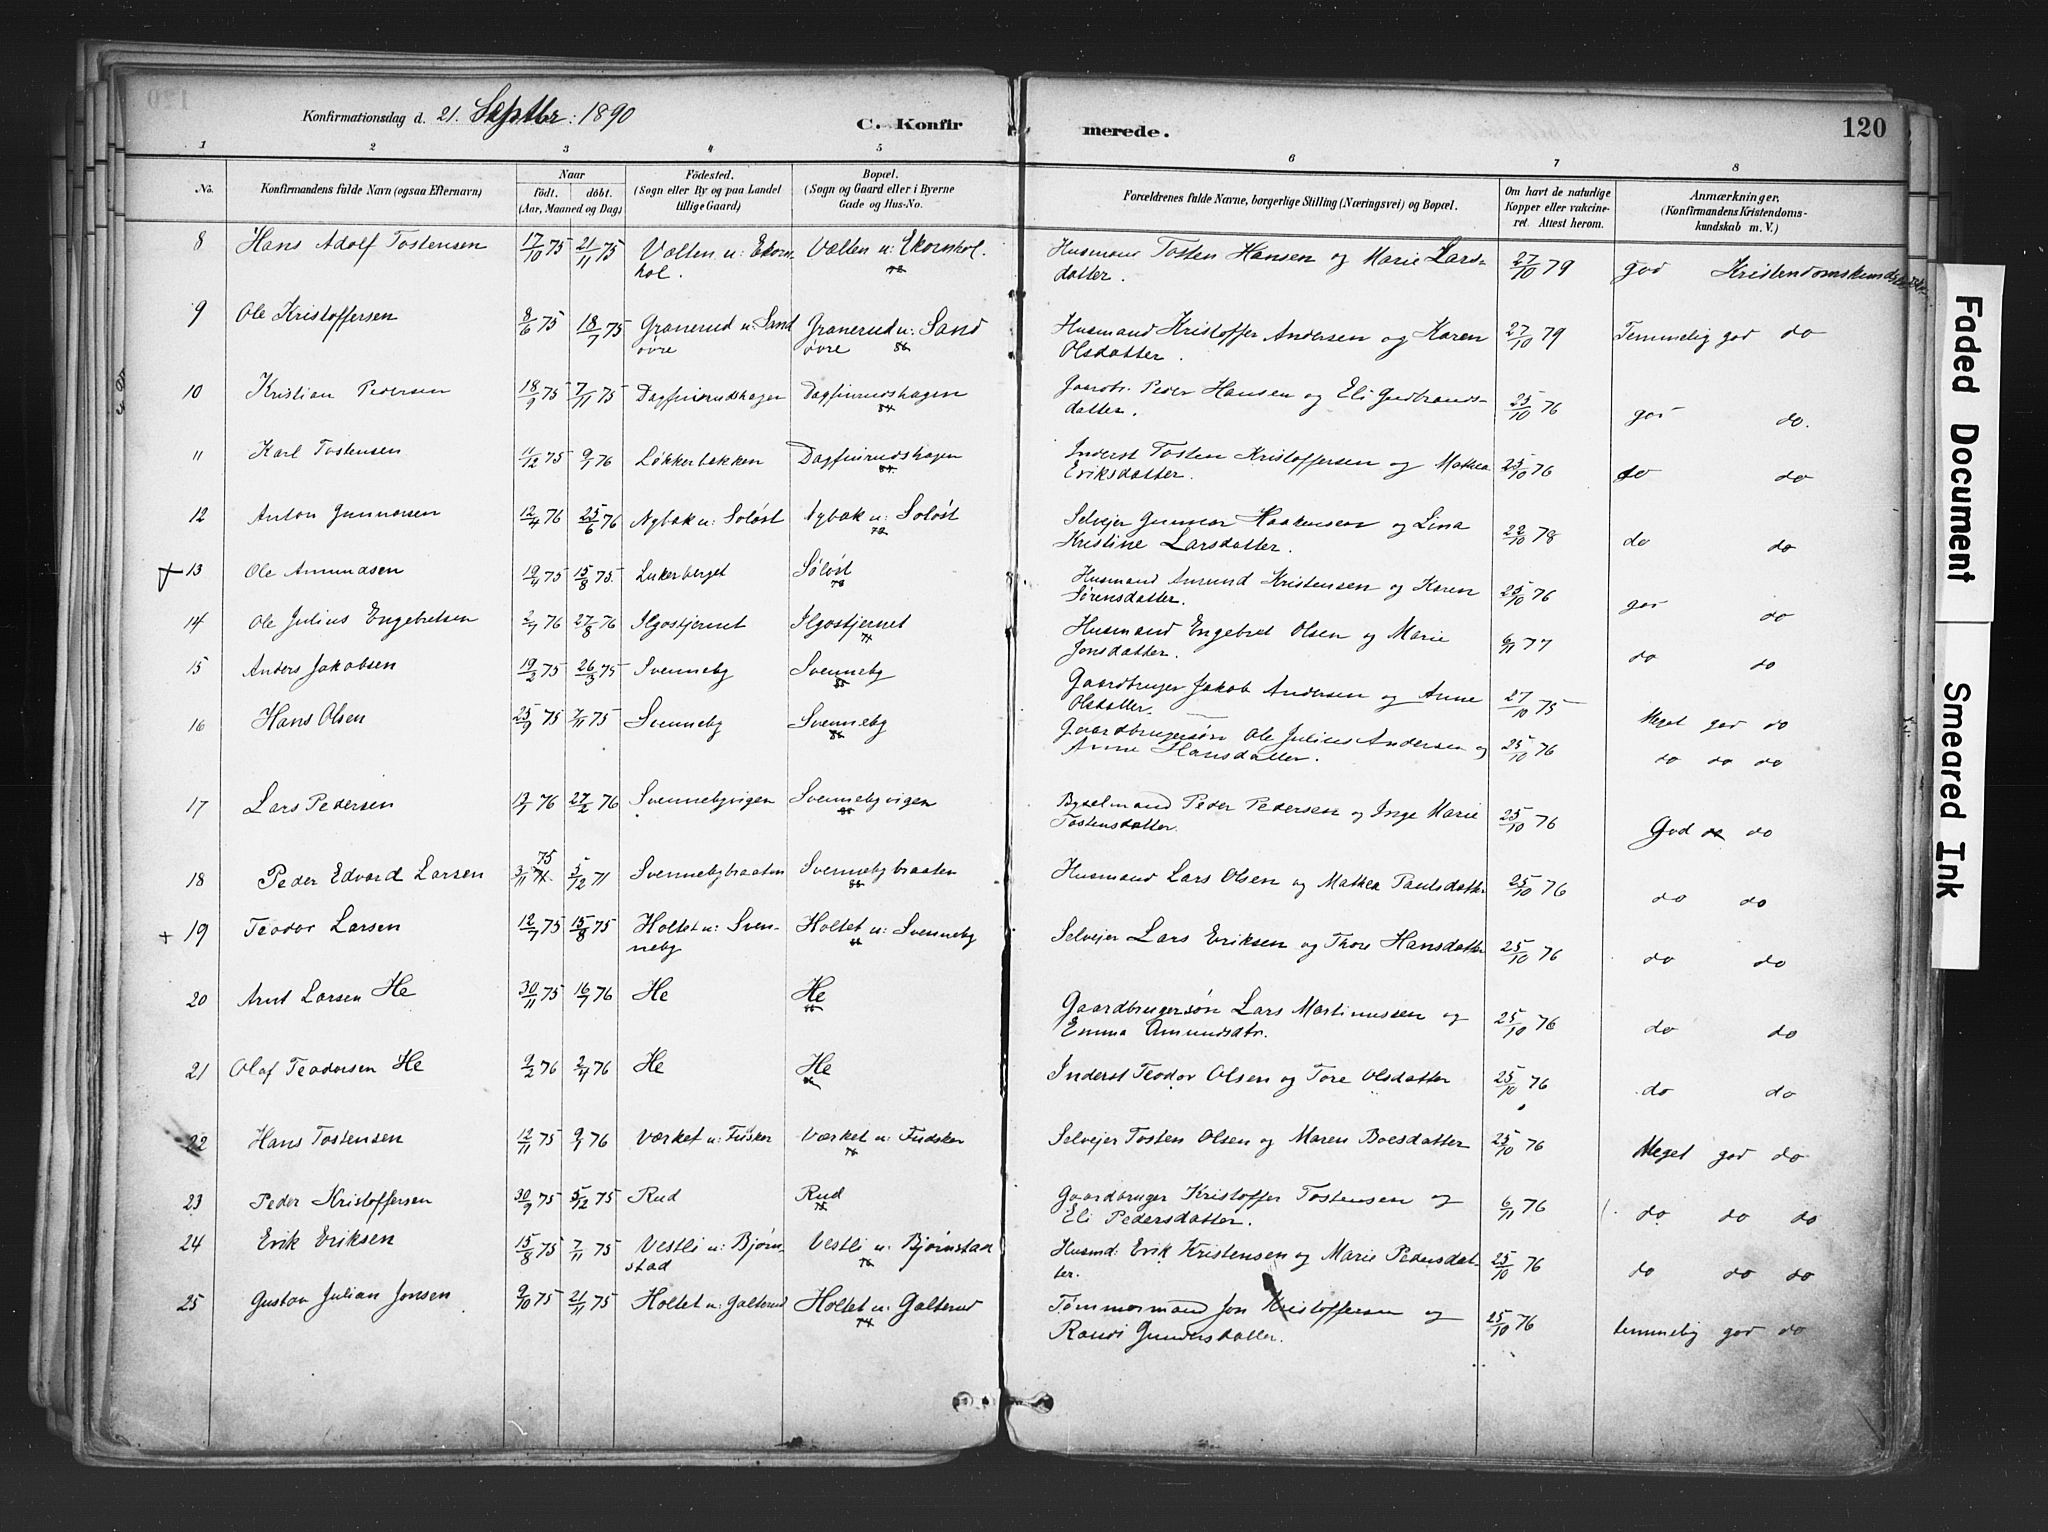 Konfirmationsdag d. 21. Septbr: 1890
C. Konfirmerede.
120
1 2 3 4 5 6 7 8
No.
Konfirmandens fulde Navn (ogsaa Efternavn)
Naar
födt. döbt.
(Aar, Maaned og Dag)
Födested.
(Sogn eller By og paa Landet
tillige Gaard)
Bopæl.
(Sogn og Gaard eller i Byerne
Gade og Hus-No.
Forældrenes fulde Navne, borgerlige Stilling (Næringsvei) og Bopæl.
Om havt de naturlige
Kopper eller vakcine-
ret. Attest herom.
Anmærkninger,
(Konfirmandens Kristendoms-
kundskab m. V.)
8 Hans Adolf Tostensen 17/10 75 21/11 75 Valten u: Ekorn- Valten u: Ekornhol. Husmand Tosten Hansen og Marie Lars- 27/10 79 god Kristendomskundskab
hol. datter.
9 Ole Kristoffersen 8/6 75 18/7 75 Granerud u: Sand Granerud u: Sand Husmand Kristoffer Andersen og Karen 27/10 79 Temmelig god do
øvre øvre Olsdatter.
10 Kristian Pedersen 18/9 75 7/11 75 Dagfinrudshagen Dagfinrudshagen Gaardb. Peder Hansen og Eli Gudbrands- 25/10 76 god do.
datter.
11 Karl Tostensen 11/12 75 9/1 76 Løkkerbakken Dagfinrudshagen Inderst Tosten Kristoffersen og Mathea 25/10 76 do do
Eriksdatter.
12 Anton Gunnarsen 12/4 76 25/6 76 Nybak u: Soløst Nybak u: Soløst Selvejer Gunnar Haakensen og Lina 22/10 78 do do
Kristine Larsdatter.
13 Ole Amundsen 19/4 75 15/8 75. Lukerberget Søløst Husmand Amund Kristensen og Karen 25/10 76 god do
Sørensdatter.
14 Ole Julius Engebretsen 2/7 76 27/8 76 Ilgostjernet Ilgostjernet Husmand Engebret Olsen og Marie 6/11 77 do do
Jonsdatter.
15 Anders Jakobsen 19/2 75 26/3 75 Svenneby Svenneby Gaardbruger Jakob Andersen og Anne 27/10 75 Meget god do
Olsdatter.
16 Hans Olsen 25/9 75 7/11 75 Svenneby Svenneby Gaardbrugersøn Ole Julius Andersen og 25/10 76 do do do
Anne Hansdatter.
17 Lars Pedersen 13/1 76 27/2 76 Svennebyvigen Svennebyvigen Bygselmand Peder Pedersen og Inge Marie 25/10 76 God do
Tostensdatter.
18 Peder Edvard Larsen 3/11 75 5/12 71 Svennebybraaten Svennebybraaten Husmand Lars Olsen og Mathea Paulsdatter 25/10 76 do do
19 Teodor Larsen 12/7 75 15/8 75 Holtet u: Sven- Holtet u: Svenneby Selvejer Lars Eriksen og Thore Hansdatter 25/10 76 do do
neby
20 Arnt Larsen He 30/11 75 16/1 76 He He Gaardbrugersøn Lars Martinussen og 25/10 76 do do
Emma Amundsdtr.
21 Olaf Teodorsen He 9/2 76 2/4 76 He He Inderst Teodor Olsen og Tore Olsdatter 25/10 76 do do
22 Hans Tostensen 12/11 75 9/1 76 Værket u: Fusker Værket u: Fudsker Selvejer Tosten Olsen og Maren Boesdatter 25/10 76 Meget god do
23 Peder Kristoffersen 30/9 75 5/12 75 Rud Rud Gaardbruger Kristoffer Tostensen og 6/11 76 do do do
Eli Pedersdatter.
24 Erik Eriksen 15/8 75 7/11 75 Vestli u: Bjørn- Vestli u: Bjørnstad Husmd: Erik Kristensen og Marie Pedersdat- 25/10 76 do do do
stad ter.
25 Gustav Julian Jonsen 9/10 75 21/11 75 Holtet u: Galterud Holtet u: Galterud Tømmermand Jon Kristoffersen og 25/10 76 temmelig god do
74 Randi Gundersdatter.
Faded Document
Smeared Ink